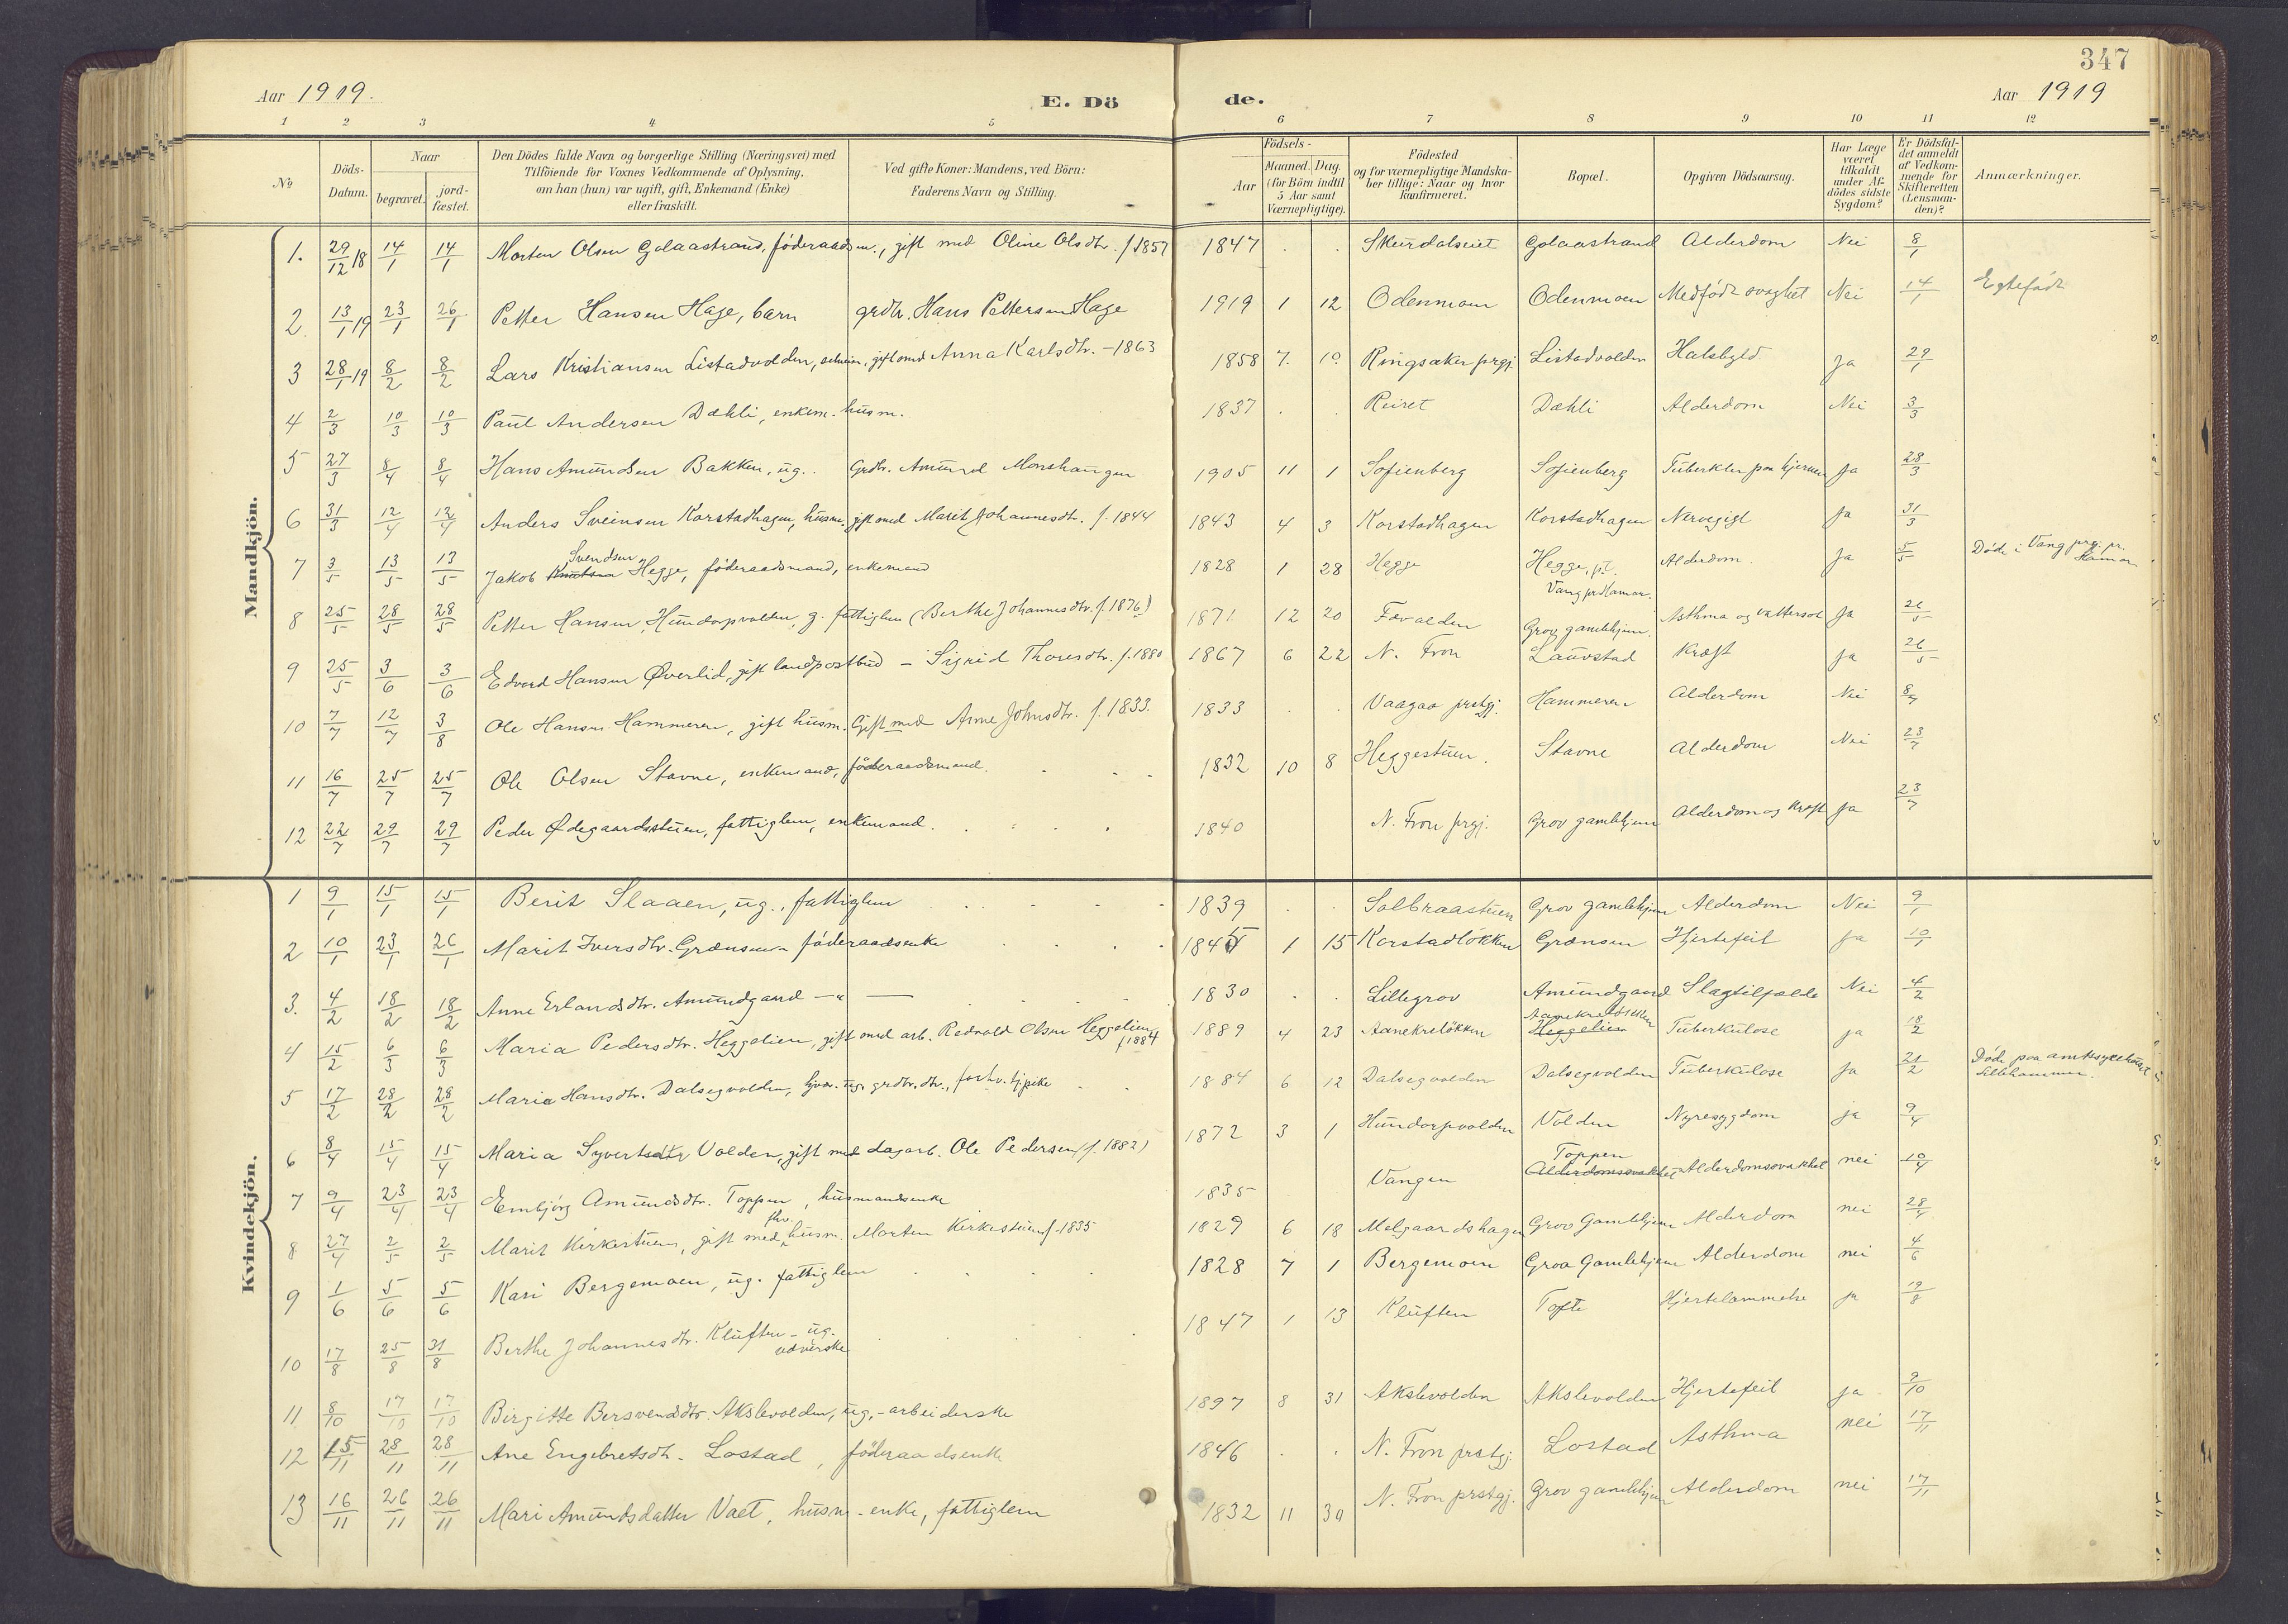 347
Aar 1919. E. Dö de. Aar 1919
1 2 3 4 5 6 7 8 9 10 11 12
№
Döds-Datum.
Naar begravet. jord-fæstet.
Den Dödes fulde Navn og borgerlige Stilling (Næringsvei) med Tilföiende for Voxnes Vedkommende af Oplysning, om han (hun) var ugift, gift, Enkemand (Enke) eller fraskilt.
Ved gifte Koner: Mandens, ved Börn: Faderens Navn og Stilling.
Födsels-
Aar Maaned. Dag. (for Börn indtil 5 Aar samt Værnepligtige).
Födested og for værnepligtige Mandskaber tillige: Naar og hvor konfirmeret.
Bopæl.
Opgiven Dödsaarsag.
Har Læge været tilkaldt under Afdödes sidste Sygdom?
Er Dödsfaldet anmeldt af Vedkommende for Skifteretten (Lensmanden)?
Anmærkninger.
Mandkjön.
1. 29/12 18 14/1 14/1 Morten Olsen Golaastrand, föderaadsm., gift med Oline Olsdtr. f. 1857 1847 Skurdalseiet Golaastrand Alderdom Nei 8/1
2. 13/1 19 23/1 26/1 Petter Hansen Hage, barn grdbr. Hans Pettersen Hage 1919 1 12 Odenmoen Odenmoen Medfödt svaghet Nei 14/1 Egtefödt
3 28/1 19 8/2 8/2 Lars Kristiansen Listadvolden, gift med Anna Karlsdtr. - 1863 1858 7. 10. Ringsaker prgj. Listadvolden Halsbyld Ja 29/1
4 2/3 10/3 10/3 Paul Andersen Dæhli, enkem. husm. 1837 Reiret Dæhli Alderdom Nei 3/3
5 27/3 8/4 8/4 Hans Amundsen Bakken, ug. Grdbr. Amund Monshaugen 1905 11 1 Sofienberg Sofienberg Tuberkler paa hjernen Ja 28/3
6 31/3 12/4 12/4 Anders Sveinsen Korstadhagen, husm. gift med Marit Johannesdtr. f. 1844 1843 4 3 Korstadhagen Korstadhagen Nervegigt Ja 31/3
7 3/5 13/5 13/5 Jakob Knutsen Svendsen Hegge, föderaadsmand, enkemand 1828 1 28 Hegge Hegge, p.t. Vang pr Hamar. Alderdom. Ja 5/5 Döde i Vang prgj. pr. Hamar.
8 25/5 28/5 28/5 Petter Hansen Hundorpvolden, g. fattiglem (Berthe Johannesdtr. f. 1876) 1871 12 20 Grov gamlehjem. Asthma og vattersot Ja 26/5
9 25/5 3/6 3/6 Edvard Hansen Øverlid, gift landpostbud - Sigrid Thoresdtr. f. 1880 1867 6 22 N. Fron Lauvstad Kræft Ja 26/5
10 7/7 12/7 3/8 Ole Hansen Hammeren, gift husm. Gift med Anne Johnsdtr. f. 1833. 1833 Vaagaa prstgj. Hammeren Alderdom Nei 8/7
11 16/7 25/7 25/7 Ole Olsen Stavne, enkemand, föderaadsmand. 1832 10 8 Heggestuen. Stavne Alderdom Nei 23/7
12 22/7 29/7 29/7 Peder Ødegaardsstuen, fattiglem, enkemand. 1840 N. Fron prgj. Grov gamlehjem Alderdom og kræft Ja 23/7
Kvindekjön.
1 9/1 15/1 15/1 Berit Slaaen, ug., fattiglem 1839 Solbraastuen Grov gamlehjem Alderdom Nei 9/1
2 10/1 23/1 26/1 Marit Iversdtr. Grænsen - föderaadsenke 1845 1 15 Korstadlökken Grænsen Hjertefeil Ja 10/1
3. 4/2 18/2 18/2 Anne Erlandsdtr. Amundgaard - " - 1830 Lillegrov Amundgaard Slagtilfælde Nei 4/2
4 15/2 6/3 6/3 Maria Pedersdtr. Heggelien, gift med arb. Redvald Olsen Heggelien f. 1884 1889 4 23 Aanekrelökken Aanekrelökken Heggelien Tuberkulose ja 18/2
5 17/2 28/2 28/2 Marie Hansdtr. Dalsegvolden, ug. grdbr. dtr., forhv. tj.pike 1884 6 12 Dalsegvolden Dalsegvolden Tuberkulose Ja 21/2 Döde paa amtssykehuset Lillehammer.
6 8/4 15/4 15/4 Maria Syvertsdtr Volden, gift med dagarb. Ole Pedersen (f. 1882) 1872 3 1 Hundorpvolden Volden Nyresygdom ja 9/4
7 9/4 23/4 23/4 Embjörg Amundsdtr. Toppen, husmandsenke 1835 Vangen Toppen Alderdomssvakhet Alderdomssvakhet nei 10/4
8 27/4 2/5 2/5 Marit Kirkestuen, gift med fhv. husm. Morten Kirkestuen f. 1835 1829 6 18 Melgaardshagen Grov Gamlehjem Alderdom nei 28/4
9 1/6 5/6 5/6 Kari Bergemoen, ug. fattiglem 1828 7 1 Bergemoen Grov Gamlehjem Alderdom nei 4/6
10 17/8 25/8 31/8 Berthe Johannesdtr. Kluften - ug. væverske 1847 1 13 Kluften Tofte Hjertelammelse ja 19/8
11 8/10 17/10 17/10 Birgitte Bersvendsdtr. Akslevolden, ug. - arbeiderske 1897 8 31 Akslevolden Akslevolden Hjertefeil ja 9/10
12 15/11 28/11 28/11 Ane Engebretsdtr. Lostad, föderaadsenke 1846 N. Fron prstgj. Lostad Asthma nei 17/11
13 16/11 26/11 26/11 Mari Amundsdatter Vaet, husm - enke, fattiglem 1832 11 30 N. Fron prstgj. Grov gamlehjem Alderdom nei 17/11